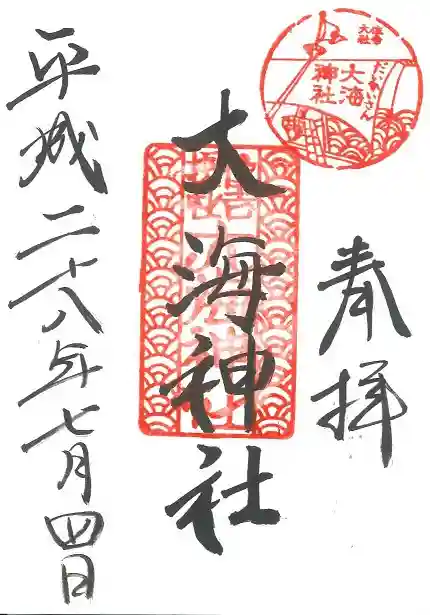 住吉
大社
だいかいさん
大海
神社
奉拝
大海神社
平成二十八年七月四日